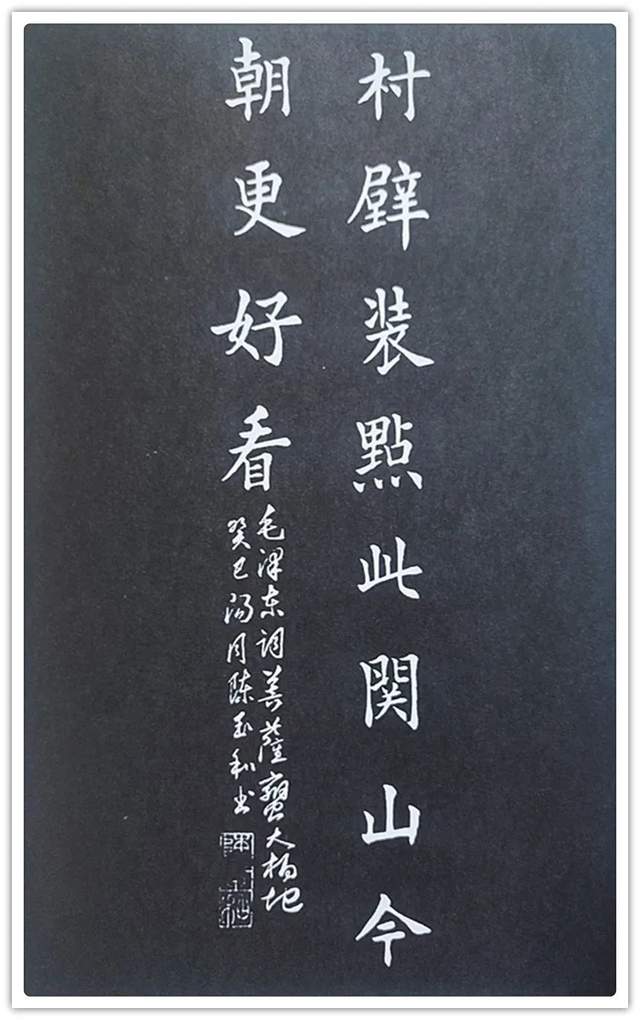 村壁装點此関山今
朝更好看
毛澤東词菩薩蠻大柏地
癸巳陽月陈玉和书